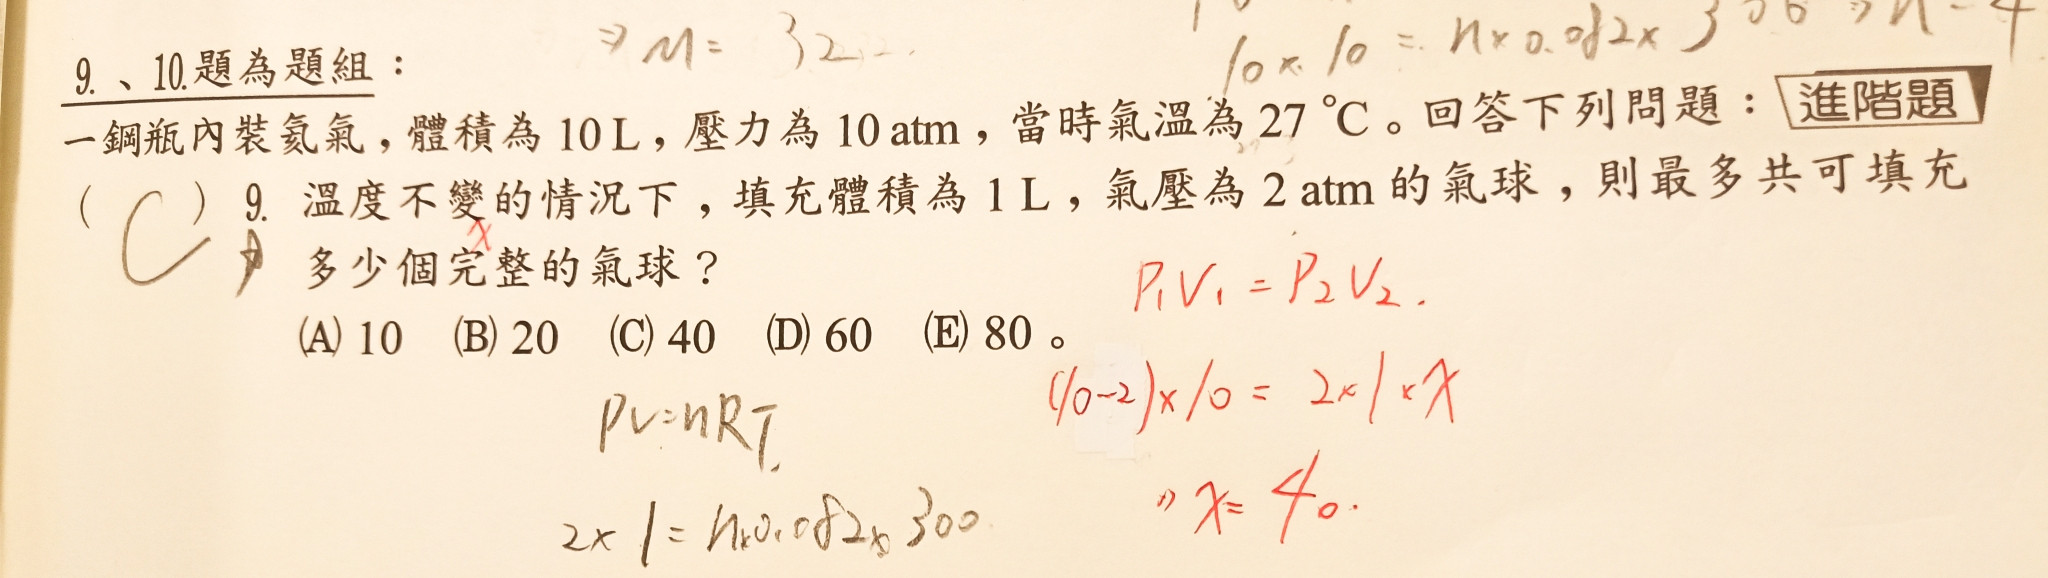 ⇒ M = 32.
10 × 10 = n × 0.082 × 300 ⇒ n = 4
9.、10.題為題組：
一鋼瓶內裝氦氣，體積為 10 L，壓力為 10 atm，當時氣溫為 27 °C。回答下列問題：進階題
( C ) 9. 溫度不變的情況下，填充體積為 1 L，氣壓為 2 atm 的氣球，則最多共可填充
x
多少個完整的氣球？
P₁V₁ = P₂V₂.
(A) 10 (B) 20 (C) 40 (D) 60 (E) 80。
(10-2) × 10 = 2 × 1 × x
PV = nRT.
⇒ x = 40.
2 × 1 = n × 0.082 × 300